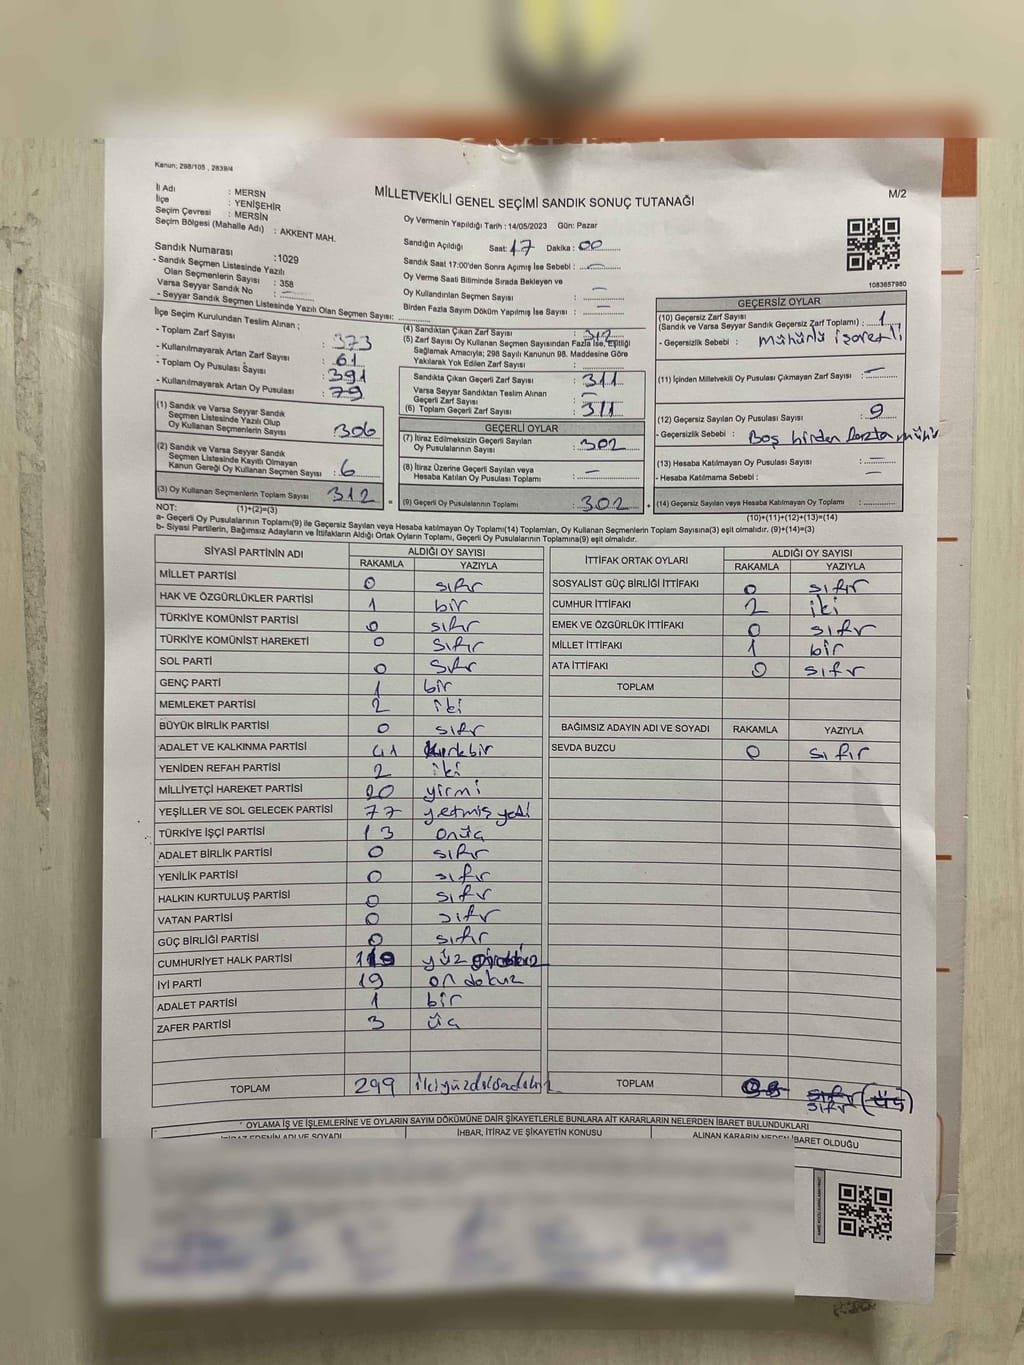 Kanun; 298/105 , 2839/4
İl Adı : MERSN
İlçe : YENİŞEHİR
Seçim Çevresi : MERSİN
Seçim Bölgesi (Mahalle Adı) : AKKENT MAH.
MİLLETVEKİLİ GENEL SEÇİMİ SANDIK SONUÇ TUTANAĞI
M/2
Oy Vermenin Yapıldığı Tarih : 14/05/2023 Gün: Pazar
Sandığın Açıldığı Saat: 17 Dakika : 00
Sandık Saat 17:00'den Sonra Açımış İse Sebebi : —
Oy Verme Saati Bitiminde Sırada Bekleyen ve
Oy Kullandırılan Seçmen Sayısı : —
Birden Fazla Sayım Döküm Yapılmış İse Sayısı : —
1083657980
Sandık Numarası :1029
- Sandık Seçmen Listesinde Yazılı
Olan Seçmenlerin Sayısı : 358
Varsa Seyyar Sandık No : —
- Seyyar Sandık Seçmen Listesinde Yazılı Olan Seçmen Sayısı:
İlçe Seçim Kurulundan Teslim Alınan ;
- Toplam Zarf Sayısı : 373
- Kullanılmayarak Artan Zarf Sayısı : 61
- Toplam Oy Pusulası Sayısı : 391
- Kullanılmayarak Artan Oy Pusulası : 79
(1) Sandık ve Varsa Seyyar Sandık
Seçmen Listesinde Yazılı Olup
Oy Kullanan Seçmenlerin Sayısı : 306
(2) Sandık ve Varsa Seyyar Sandık
Seçmen Listesinde Kayıtlı Olmayan
Kanun Gereği Oy Kullanan Seçmen Sayısı : 6
(3) Oy Kullanan Seçmenlerin Toplam Sayısı : 312
(4) Sandıktan Çıkan Zarf Sayısı : 312
(5) Zarf Sayısı Oy Kullanan Seçmen Sayısından Fazla İse, Eşitliği
Sağlamak Amacıyla; 298 Sayılı Kanunun 98. Maddesine Göre
Yakılarak Yok Edilen Zarf Sayısı :
Sandıkta Çıkan Geçerli Zarf Sayısı : 311
Varsa Seyyar Sandıktan Teslim Alınan
Geçerli Zarf Sayısı : —
(6) Toplam Geçerli Zarf Sayısı : 311
GEÇERLİ OYLAR
(7) İtiraz Edilmeksizin Geçerli Sayılan
Oy Pusulalarının Sayısı : 302
(8) İtiraz Üzerine Geçerli Sayılan veya
Hesaba Katılan Oy Pusulası Toplamı : —
(9) Geçerli Oy Pusulalarının Toplamı : 302
GEÇERSİZ OYLAR
(10) Geçersiz Zarf Sayısı
(Sandık ve Varsa Seyyar Sandık Geçersiz Zarf Toplamı) : 1
- Geçersizlik Sebebi : mühürlü işaretli
(11) İçinden Milletvekili Oy Pusulası Çıkmayan Zarf Sayısı : —
(12) Geçersiz Sayılan Oy Pusulası Sayısı : 9
- Geçersizlik Sebebi : Boş birden fazla mühür
(13) Hesaba Katılmayan Oy Pusulası Sayısı : —
- Hesaba Katılmama Sebebi : —
(14) Geçersiz Sayılan veya Hesaba Katılmayan Oy Toplamı :
NOT: (1)+(2)=(3)
(10)+(11)+(12)+(13)=(14)
a- Geçerli Oy Pusulalarının Toplamı(9) ile Geçersiz Sayılan veya Hesaba katılmayan Oy Toplamı(14) Toplamları, Oy Kullanan Seçmenlerin Toplam Sayısına(3) eşit olmalıdır. (9)+(14)=(3)
b- Siyasi Partilerin, Bağımsız Adayların ve İttifakların Aldığı Ortak Oyların Toplamı, Geçerli Oy Pusulalarının Toplamına(9) eşit olmalıdır.
SİYASİ PARTİNİN ADI ALDIĞI OY SAYISI
RAKAMLA YAZIYLA
MİLLET PARTİSİ 0 sıfır
HAK VE ÖZGÜRLÜKLER PARTİSİ 1 bir
TÜRKİYE KOMÜNİST PARTİSİ 0 sıfır
TÜRKİYE KOMÜNİST HAREKETİ 0 sıfır
SOL PARTİ 0 sıfır
GENÇ PARTİ 1 bir
MEMLEKET PARTİSİ 2 iki
BÜYÜK BİRLİK PARTİSİ 0 sıfır
ADALET VE KALKINMA PARTİSİ 41 Kırkbir
YENİDEN REFAH PARTİSİ 2 iki
MİLLİYETÇİ HAREKET PARTİSİ 20 yirmi
YEŞİLLER VE SOL GELECEK PARTİSİ 77 yetmiş yedi
TÜRKİYE İŞÇİ PARTİSİ 13 onüç
ADALET BİRLİK PARTİSİ 0 sıfır
YENİLİK PARTİSİ 0 sıfır
HALKIN KURTULUŞ PARTİSİ 0 sıfır
VATAN PARTİSİ 0 sıfır
GÜÇ BİRLİĞİ PARTİSİ 0 sıfır
CUMHURİYET HALK PARTİSİ 119 yüz
İYİ PARTİ 19 on dokuz
ADALET PARTİSİ 1 bir
ZAFER PARTİSİ 3 üç
TOPLAM 299 ikiyüzdoksandokuz
İTTİFAK ORTAK OYLARI ALDIĞI OY SAYISI
RAKAMLA YAZIYLA
SOSYALİST GÜÇ BİRLİĞİ İTTİFAKI 0 sıfır
CUMHUR İTTİFAKI 2 iki
EMEK VE ÖZGÜRLÜK İTTİFAKI 0 sıfır
MİLLET İTTİFAKI 1 bir
ATA İTTİFAKI 0 sıfır
TOPLAM
BAĞIMSIZ ADAYIN ADI VE SOYADI RAKAMLA YAZIYLA
SEVDA BUZCU 0 sıfır
TOPLAM sıfır
* OYLAMA İŞ VE İŞLEMLERİNE VE OYLARIN SAYIM DÖKÜMÜNE DAİR ŞİKAYETLERLE BUNLARA AİT KARARLARIN NELERDEN İBARET BULUNDUKLARI
İTİRAZ EDENİN ADI VE SOYADI İHBAR, İTİRAZ VE ŞİKAYETİN KONUSU ALINAN KARARIN NEDEN İBARET OLDUĞU